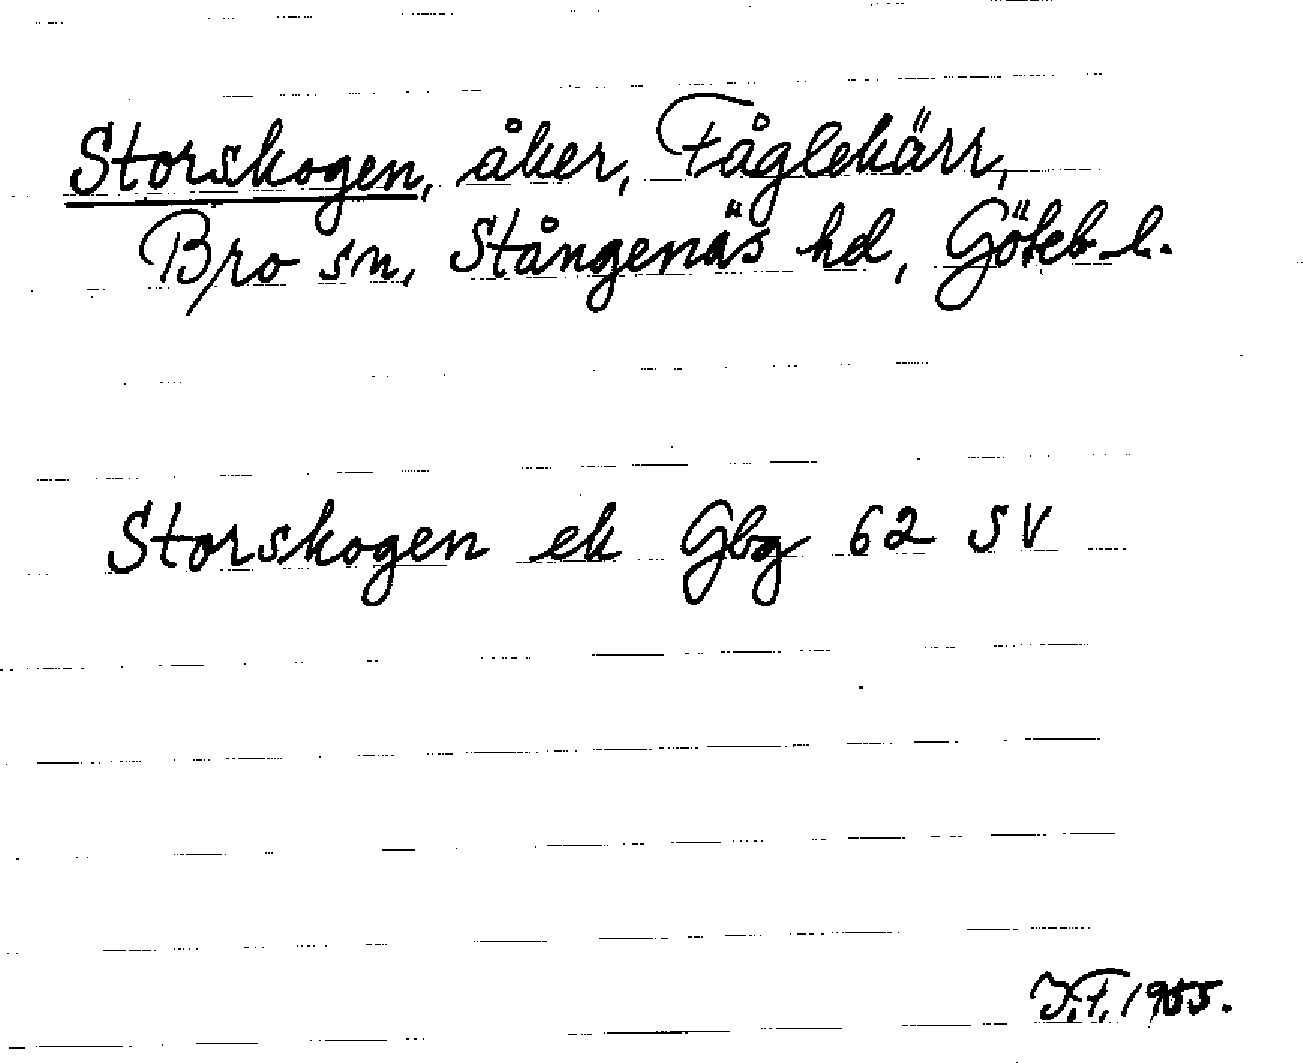 Storskogen, åker, Fåglekärr,
Bro sn, Stångenäs hd, Göteb. l.
Storskogen ek Gbg 62 SV
J.F. 1955.